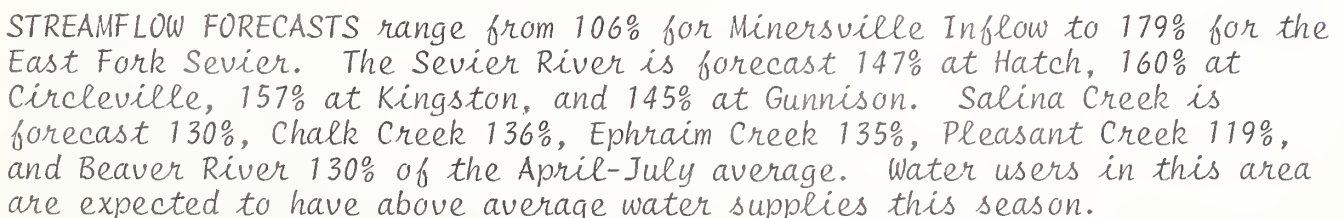 STREAMFLOW FORECASTS range from 106% for Minersville Inflow to 179% for the
East Fork Sevier. The Sevier River is forecast 147% at Hatch, 160% at
Circleville, 157% at Kingston, and 145% at Gunnison. Salina Creek is
forecast 130%, Chalk Creek 136%, Ephraim Creek 135%, Pleasant Creek 119%,
and Beaver River 130% of the April-July average. Water users in this area
are expected to have above average water supplies this season.